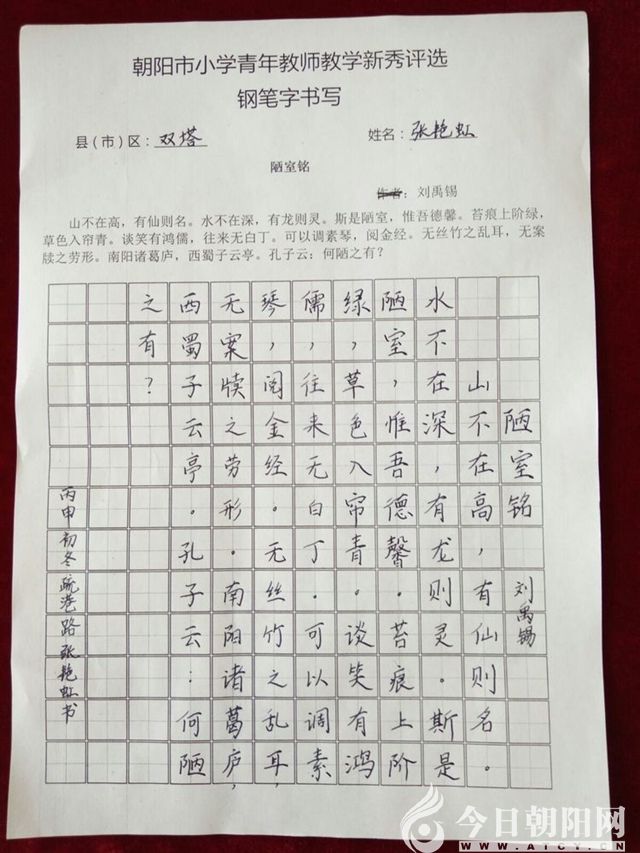 朝阳市小学青年教师教学新秀评选
钢笔字书写
县（市）区：双塔
姓名：张艳虹
陋室铭
作者：刘禹锡
山不在高，有仙则名。水不在深，有龙则灵。斯是陋室，惟吾德馨。苔痕上阶绿，
草色入帘青。谈笑有鸿儒，往来无白丁。可以调素琴，阅金经。无丝竹之乱耳，无案
牍之劳形。南阳诸葛庐，西蜀子云亭。孔子云：何陋之有？
陋室铭 刘禹锡
山不在高，有仙则名。
水不在深，有龙则灵。斯是
陋室，惟吾德馨。苔痕上阶
绿，草色入帘青。谈笑有鸿
儒，往来无白丁。可以调素
琴，阅金经。无丝竹之乱耳，
无案牍之劳形。南阳诸葛庐，
西蜀子云亭。孔子云：何陋
之有？
丙申初冬 疏港路张艳虹书
今日朝阳网
WWW.AICY.CN